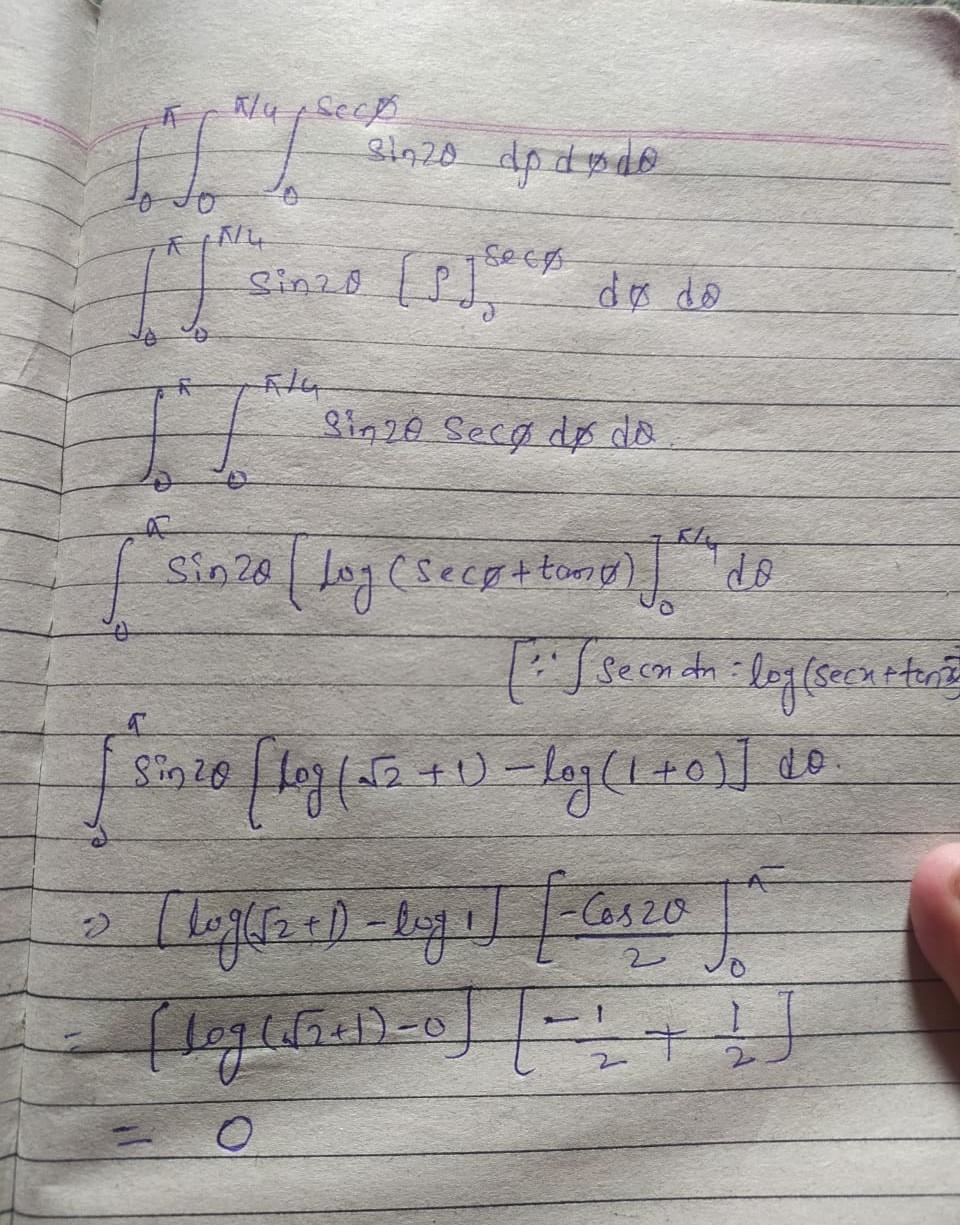 ∫₀^π ∫₀^π/4 ∫₀^secø sin2θ dρ dø dθ
∫₀^π ∫₀^π/4 sin2θ [ρ]₀^secø dø dθ
∫₀^π ∫₀^π/4 sin2θ secø dø dθ.
∫₀^π sin2θ [log(secø+tanø)]₀^π/4 dθ
[∵ ∫secx dx = log(secx+tanx)]
∫₀^π sin2θ [log(√2+1) - log(1+0)] dθ.
⇒ [log(√2+1) - log1] [-cos2θ/2]₀^π
= [log(√2+1)-0] [-1/2 + 1/2]
= 0